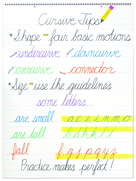 Cursive Tips
*Shape - four basic motions
undercurve / downcurve
overcurve connector
*Size - use the guidelines
some letters...
are small a c i m n o
are tall
fall f g j p q y z
Practice makes perfect!